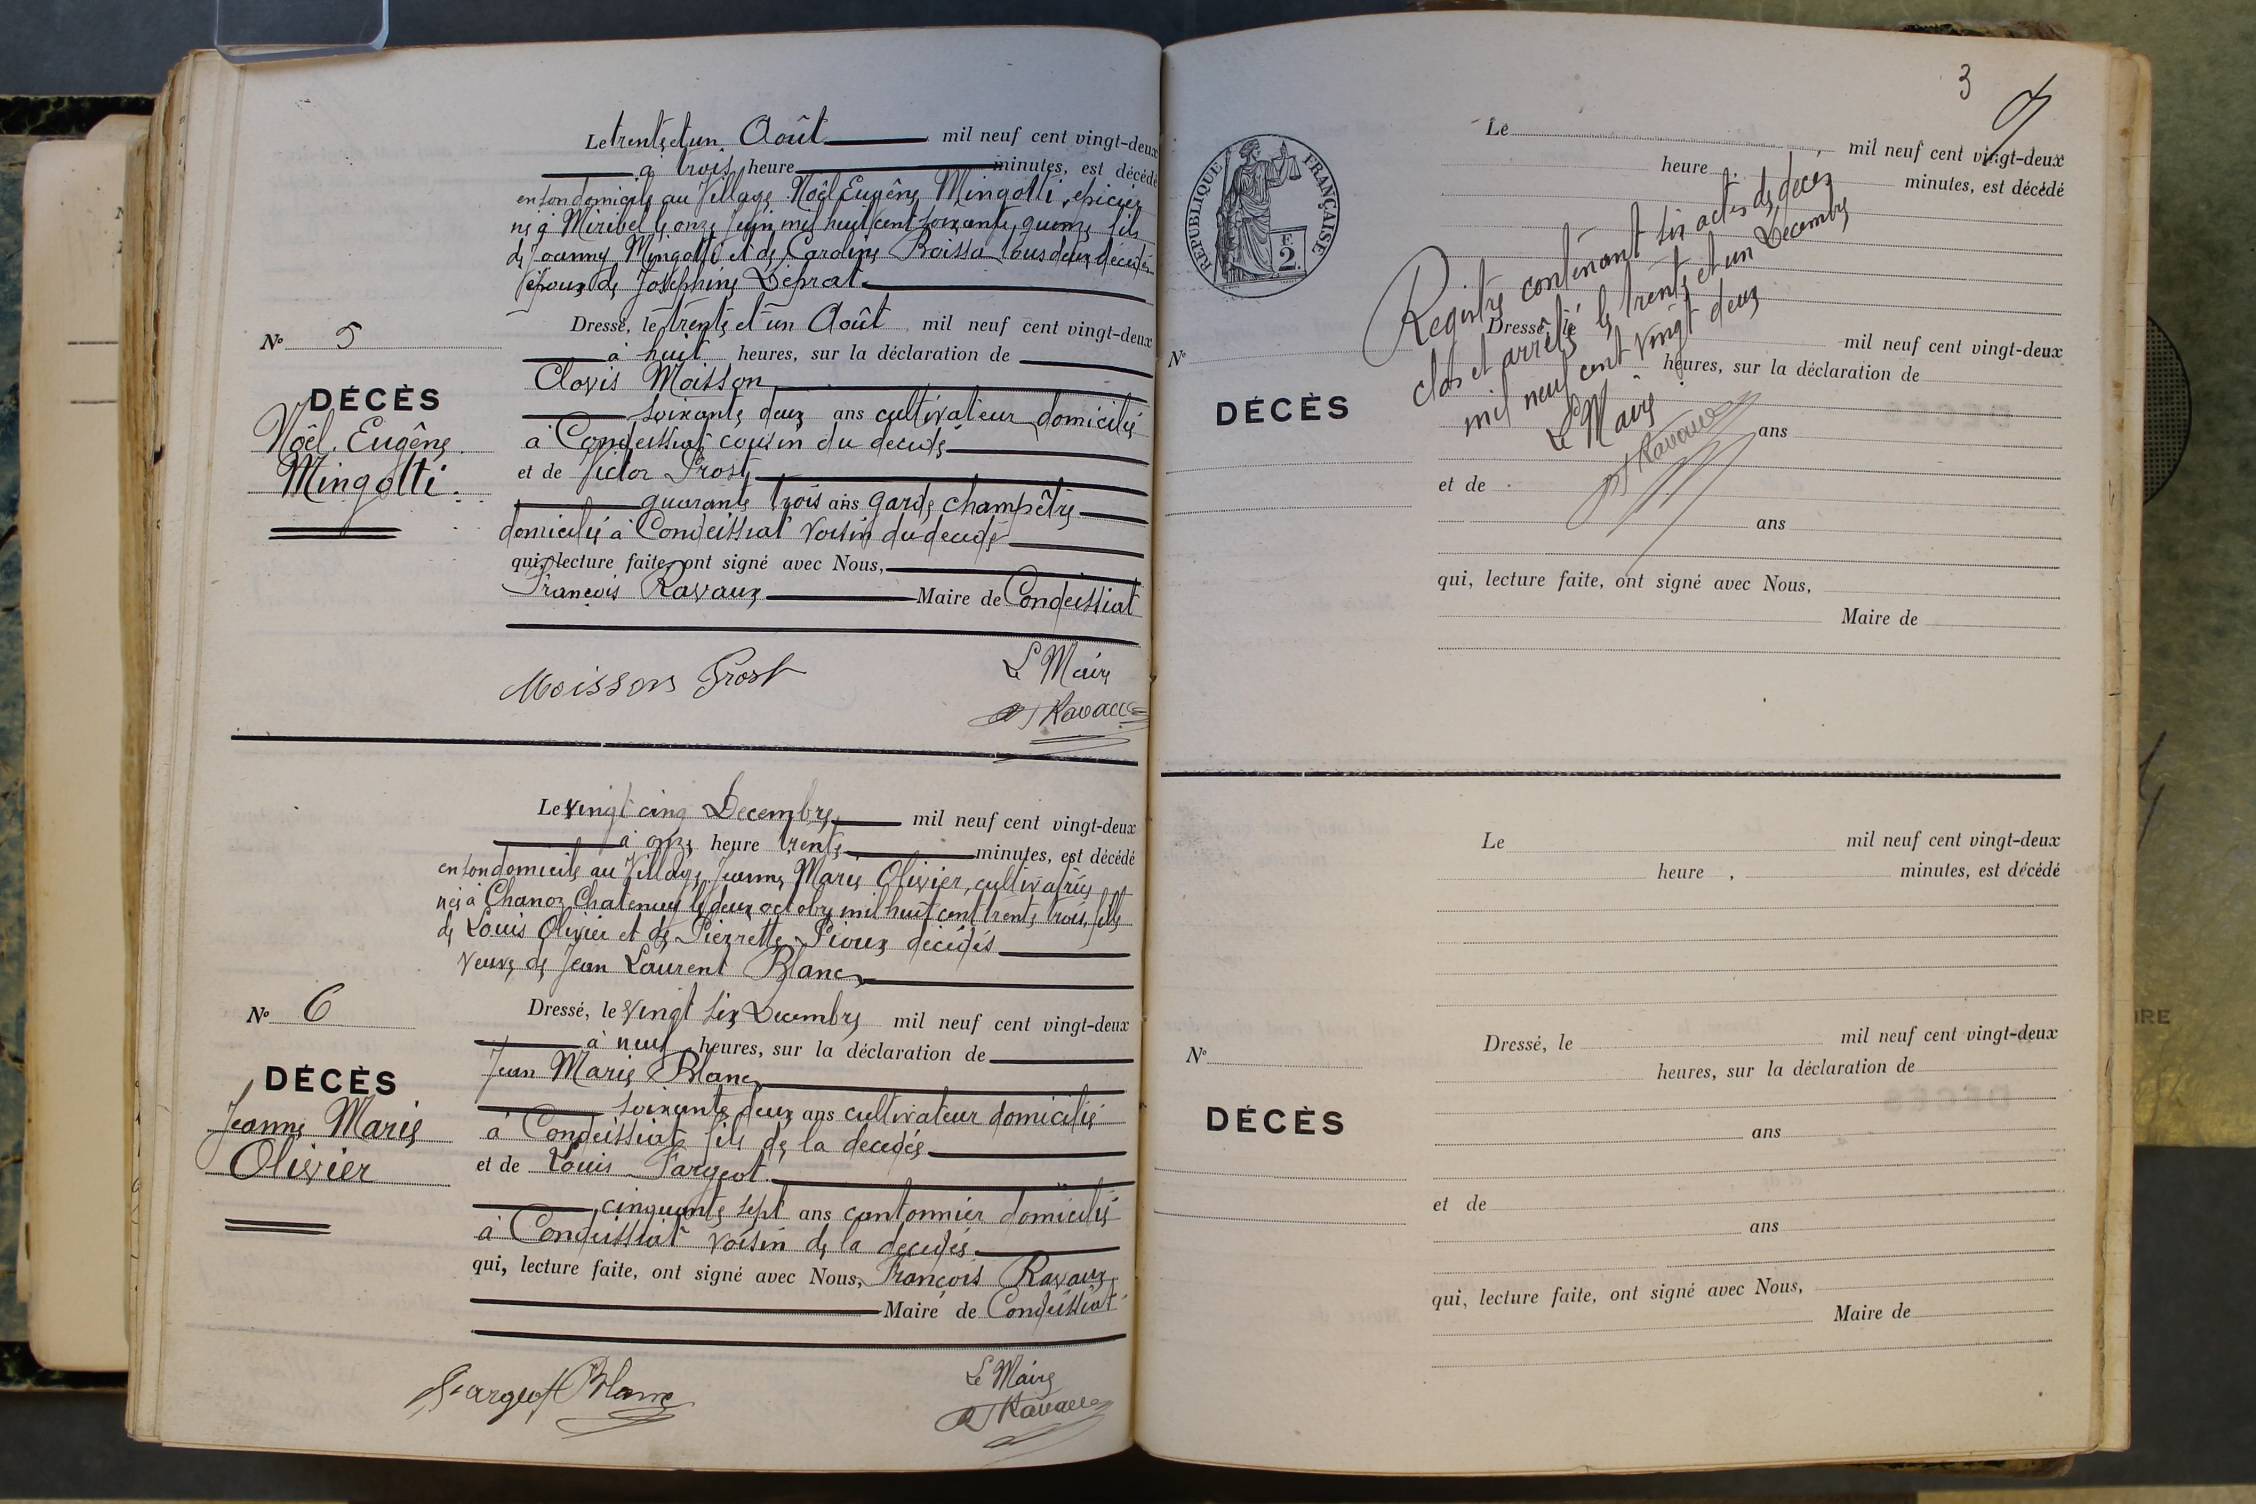 Le trente et un Août mil neuf cent vingt-deux
à trois heure minutes, est décédé
en son domicile au Village Noël Eugène Mingotti, épicier
né à Miribel le onze Juin mil huit cent soixante quinze fils
de Joanny Mingotti et de Caroline Boissa tous deux décédés
époux de Joséphine Deprat
Nº 5
Dressé, le trente et un Août mil neuf cent vingt-deux
à huit heures, sur la déclaration de
Clovis Moisson
DÉCÈS
soixante deux ans cultivateur domicilié
Noël Eugène
à Condeissiat cousin du décédé
Mingotti.
et de Victor Prost
quarante trois ans garde champêtre
domicilié à Condeissiat voisin du décédé
qui, lecture faite, ont signé avec Nous,
François Ravaux Maire de Condeissiat
Le Maire
Moisson Prost
Ravaux
Le vingt cinq Decembre mil neuf cent vingt-deux
à onze heure trente minutes, est décédé
en son domicile au Village Jeanne Marie Olivier, cultivatrice
née à Chanoz Chatenay le deux octobre mil huit cent trente trois, fille
de Louis Olivier et de Pierrette Pioux décédés
veuve de Jean Laurent Blanc
Nº 6
Dressé, le vingt six Decembre mil neuf cent vingt-deux
à neuf heures, sur la déclaration de
Jean Marie Blanc
DÉCÈS
soixante deux ans cultivateur domicilié
Jeanne Marie
à Condeissiat fils de la décédée
Olivier
et de Louis Fargeot
cinquante sept ans cantonnier domicilié
à Condeissiat voisin de la décédée
qui, lecture faite, ont signé avec Nous, François Ravaux
Maire de Condeissiat
Le Maire
Fargeot Blanc
Ravaux
3
RÉPUBLIQUE FRANÇAISE
2 F.
Le mil neuf cent vingt-deux
heure minutes, est décédé
Registre contenant six actes de décès
clos et arrêté le trente et un Decembre
mil neuf cent vingt deux
Le Maire
Ravaux
Dressé, le mil neuf cent vingt-deux
Nº
heures, sur la déclaration de
DÉCÈS
ans
et de
ans
qui, lecture faite, ont signé avec Nous,
Maire de
Le mil neuf cent vingt-deux
heure minutes, est décédé
Dressé, le mil neuf cent vingt-deux
Nº
heures, sur la déclaration de
DÉCÈS
ans
et de
ans
qui, lecture faite, ont signé avec Nous,
Maire de